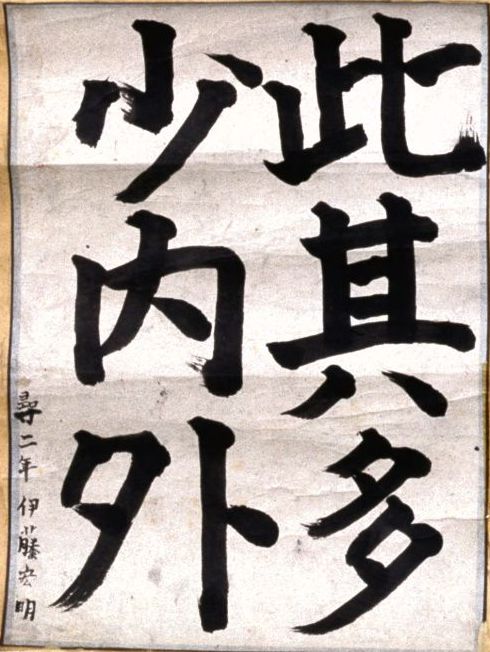 此其多
少内外
尋二年伊藤宏明